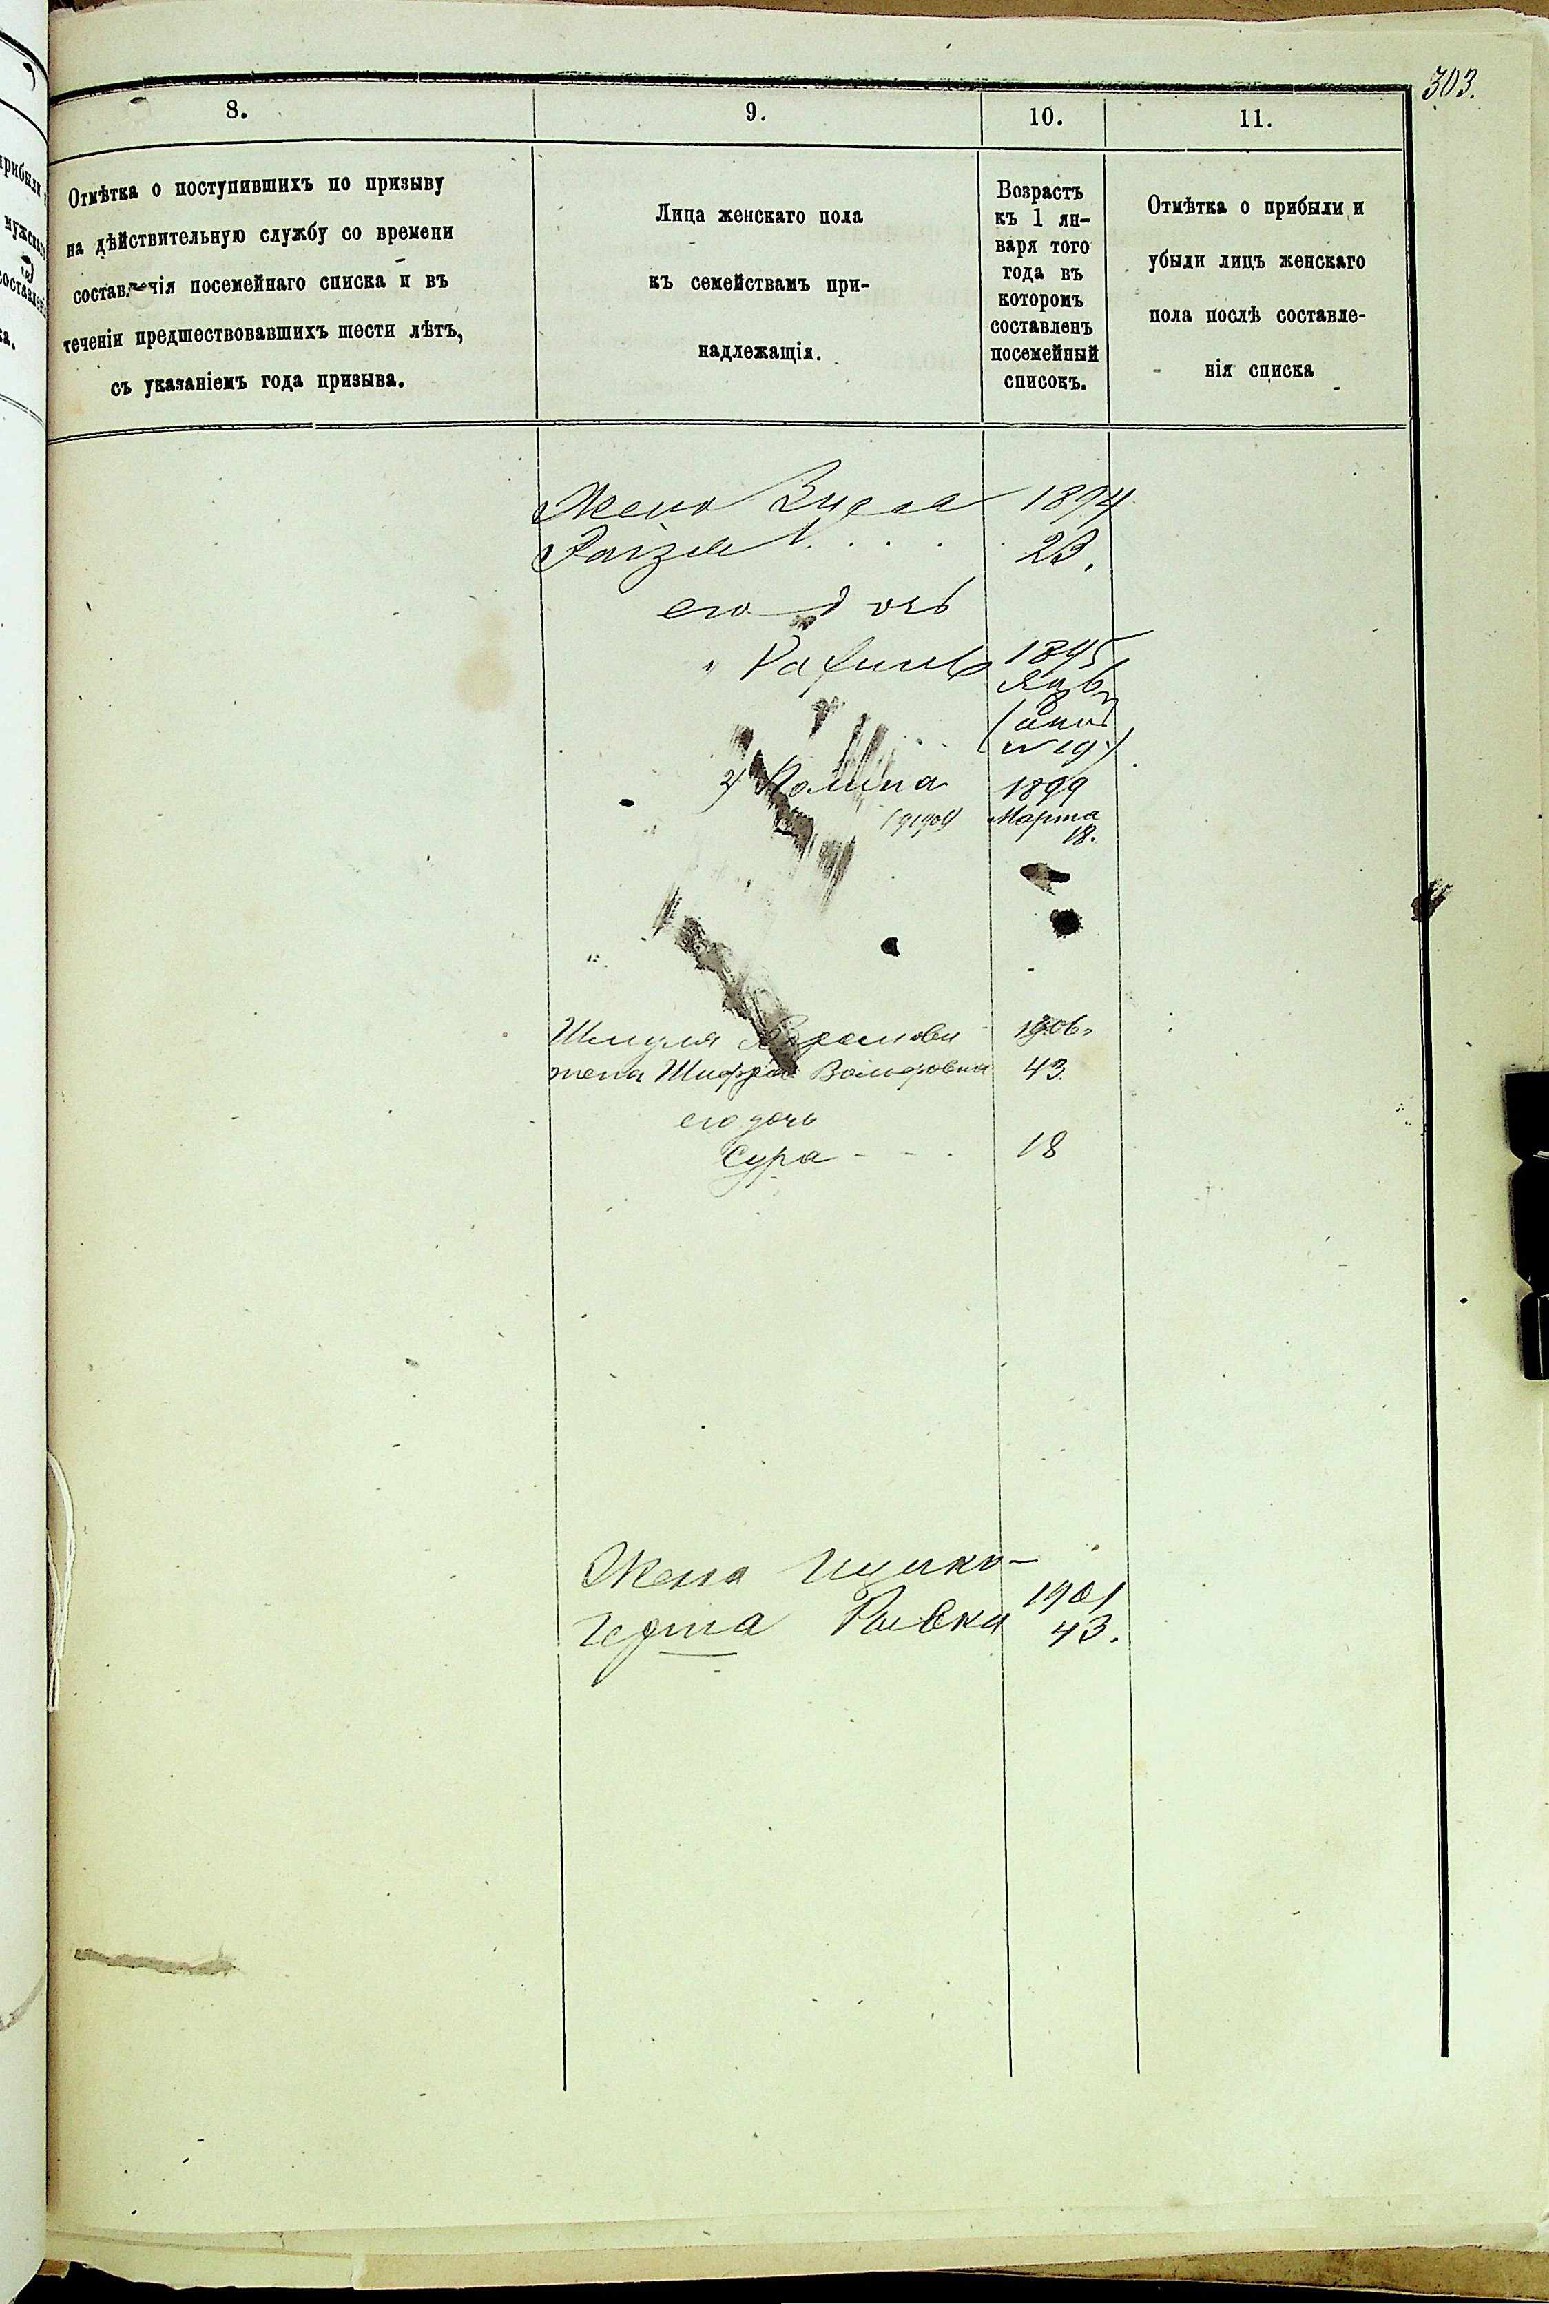 303.
8.
9.
10.
11.
Отмѣтка о поступившихъ по призыву
на дѣйствительную службу со времени
составленія посемейнаго списка и въ
теченіи предшествовавшихъ шести лѣтъ,
съ указаніемъ года призыва.
Лица женскаго пола
къ семействамъ при-
надлежащія.
Возрастъ
къ 1 ян-
варя того
года въ
которомъ
составленъ
посемейный
списокъ.
Отмѣтка о прибыли и
убыли лицъ женскаго
пола послѣ составле-
нія списка
Жена 1894
23.
его дочь
" Рахиль 1895
2) Полина 1899
Марта
18.
Шмуля 1906
жена Шифра Вольфовна 43.
его дочь
Сура - - - 18
Жена Ицико-
Герша Ривка 1901
43.